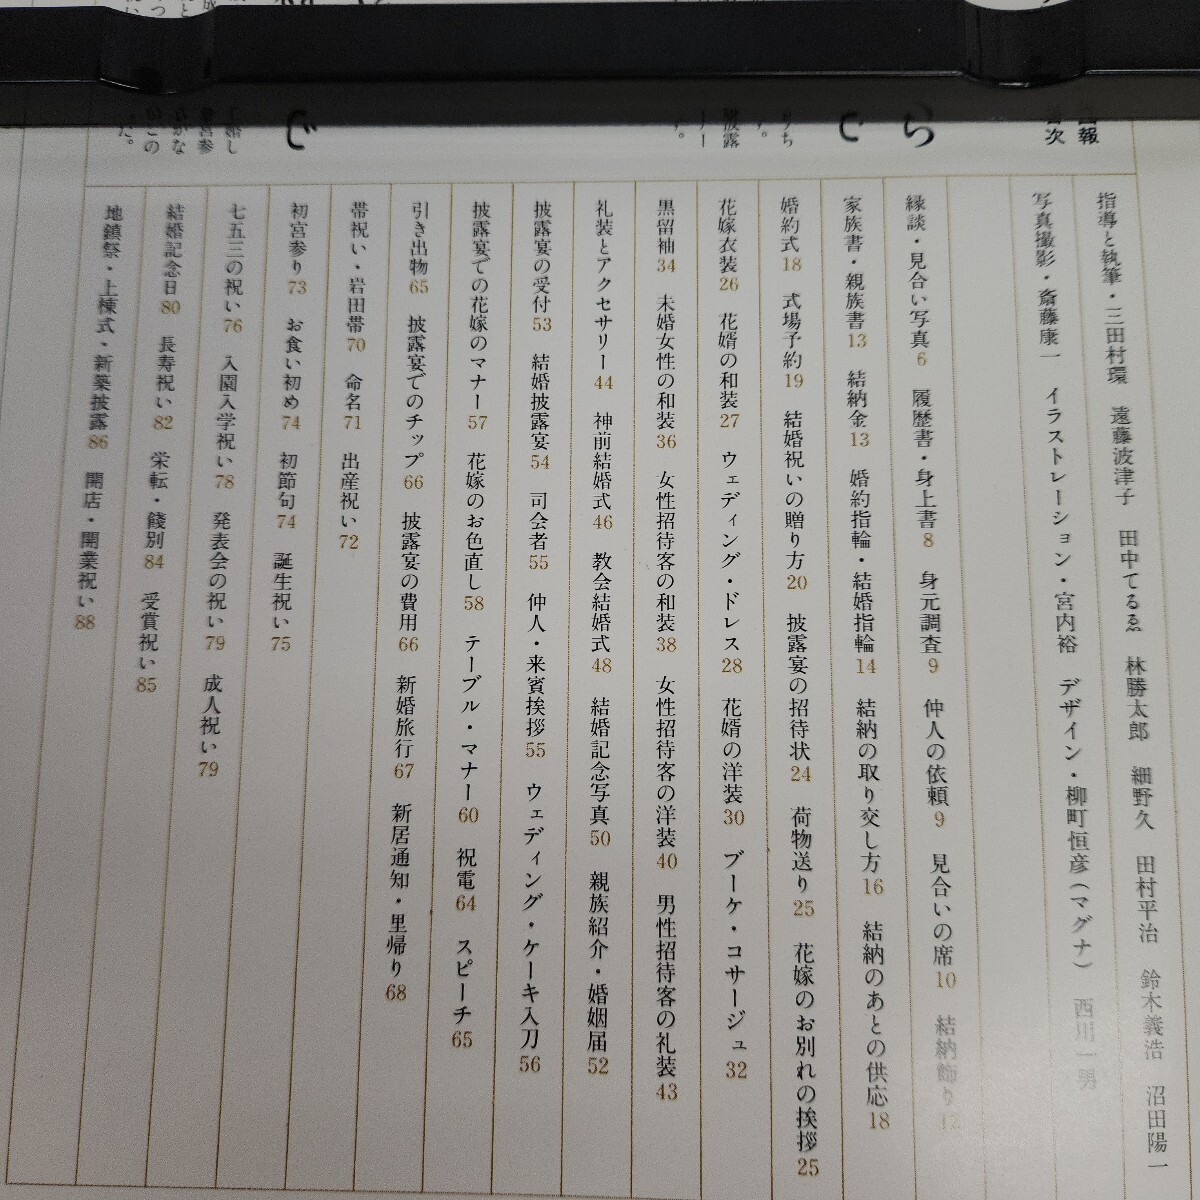 目次
指導と執筆・三田村環　遠藤波津子　田中てるゑ　林勝太郎　細野久　田村平治　鈴木義浩　沼田陽一
写真撮影・斎藤康一　イラストレーション・宮内裕　デザイン・柳町恒彦（マグナ）　西川一男
縁談・見合い写真6　履歴書・身上書8　身元調査9　仲人の依頼9　見合いの席10　結納飾り12
家族書・親族書13　結納金13　婚約指輪・結婚指輪14　結納の取り交し方16　結納のあとの供応18
婚約式18　式場予約19　結婚祝いの贈り方20　披露宴の招待状24　荷物送り25　花嫁のお別れの挨拶25
花嫁衣装26　花婿の和装27　ウェディング・ドレス28　花婿の洋装30　ブーケ・コサージュ32
黒留袖34　未婚女性の和装36　女性招待客の和装38　女性招待客の洋装40　男性招待客の礼装43
礼装とアクセサリー44　神前結婚式46　教会結婚式48　結婚記念写真50　親族紹介・婚姻届52
披露宴の受付53　結婚披露宴54　司会者55　仲人・来賓挨拶55　ウェディング・ケーキ入刀56
披露宴での花嫁のマナー57　花嫁のお色直し58　テーブル・マナー60　祝電64　スピーチ65
引き出物65　披露宴でのチップ66　披露宴の費用66　新婚旅行67　新居通知・里帰り68
帯祝い・岩田帯70　命名71　出産祝い72
初宮参り73　お食い初め74　初節句74　誕生祝い75
七五三の祝い76　入園入学祝い78　発表会の祝い79　成人祝い79
結婚記念日80　長寿祝い82　栄転・餞別84　受賞祝い85
地鎮祭・上棟式・新築披露86　開店・開業祝い88